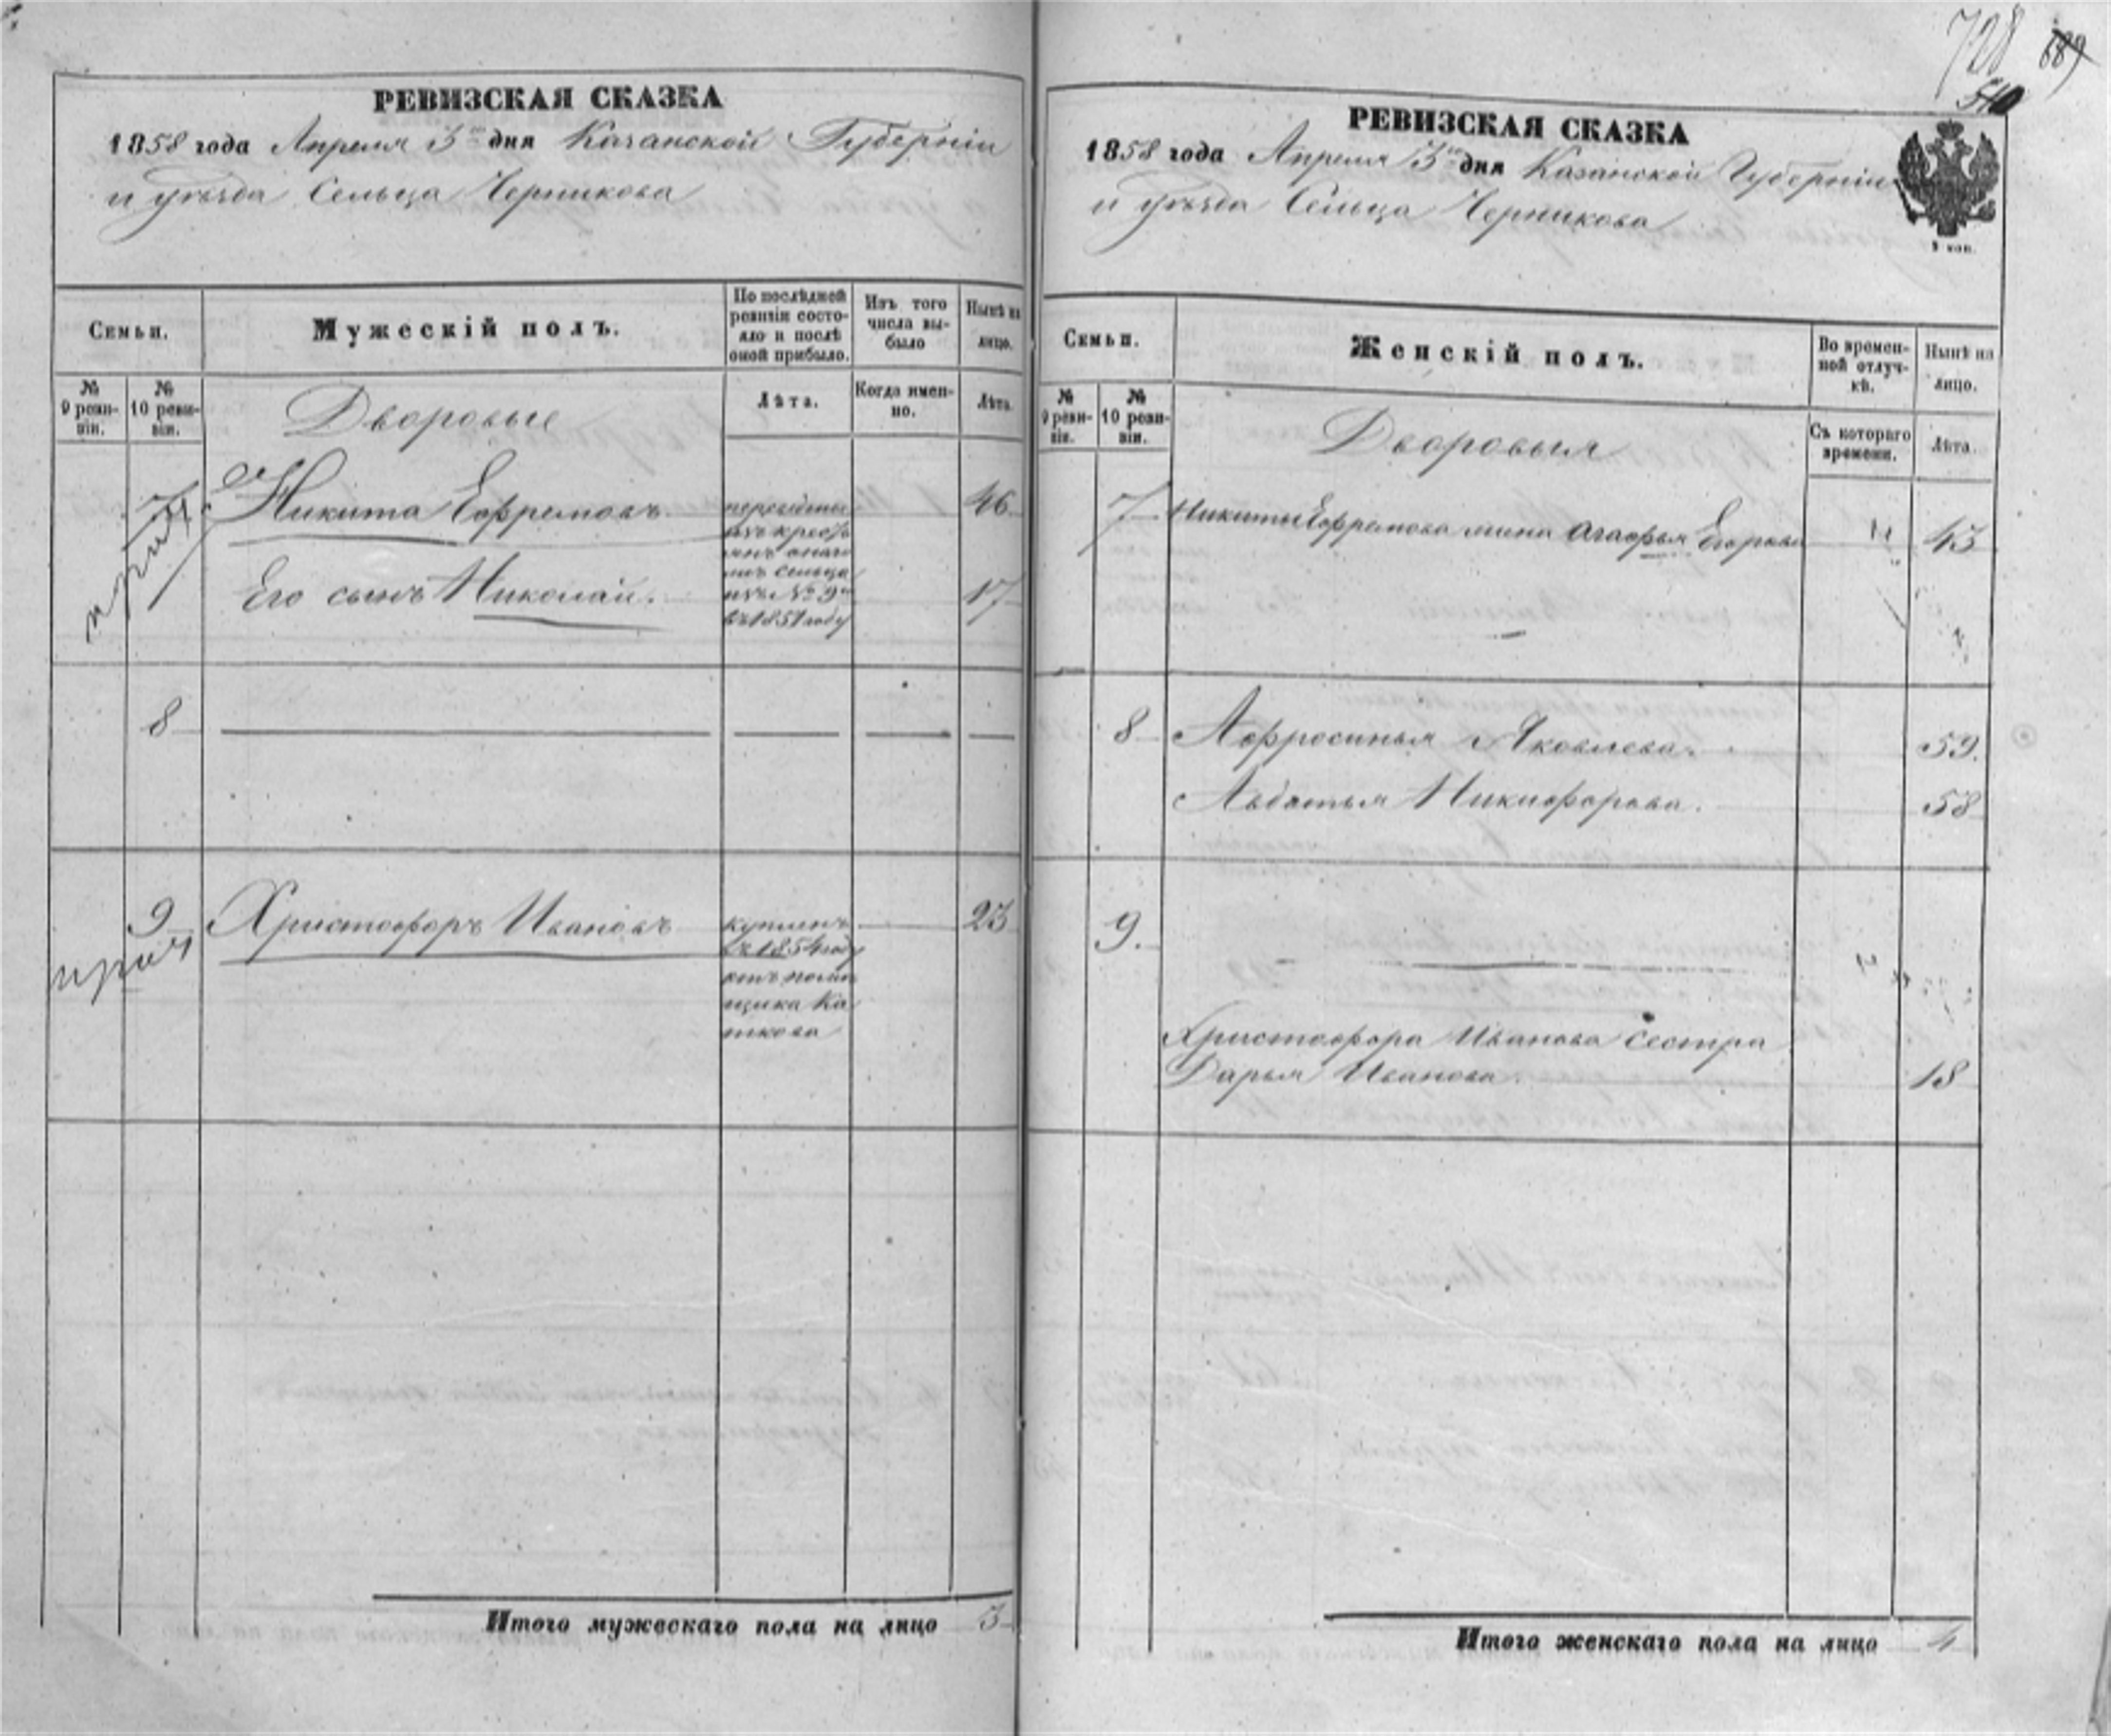 РЕВИЗСКАЯ СКАЗКА
1858 года Апреля 3го дня Казанской Губерніи
и уѣзда Сельца Черникова
Семьи.
Мужескій полъ.
По послѣдней ревизіи состояло и послѣ оной прибыло.
Изъ того числа выбыло
Нынѣ на лицо.
№ 9 ревизіи.
№ 10 ревизіи.
Лѣта.
Когда именно.
Лѣта.
Дворовые
7 Никита Ефремовъ 46
переведены
изъ кресть
янъ онаго
жъ сельца
изъ № 9го
въ 1851 году
Его сынъ Николай. 17
8
9 Христофоръ Ивановъ 23
купленъ
въ 1854 году
отъ помѣ
щика Ка
ткова
Итого мужескаго пола на лицо 3
728
689
540
РЕВИЗСКАЯ СКАЗКА
1858 года Апреля 3го дня Казанской Губерніи
и уѣзда Сельца Черникова
Семьи.
Женскій полъ.
Во временной отлучкѣ.
Нынѣ на лицо.
№ 9 ревизіи.
№ 10 ревизіи.
Съ котораго времени.
Лѣта.
Дворовыя
7 Никиты Ефремова жена Агафья Егорова " 43
8 Афросинья Яковлева. 59.
Авдотья Никифорова. 58
9.
Христофора Иванова сестра
Дарья Иванова. 18
Итого женскаго пола на лицо 4